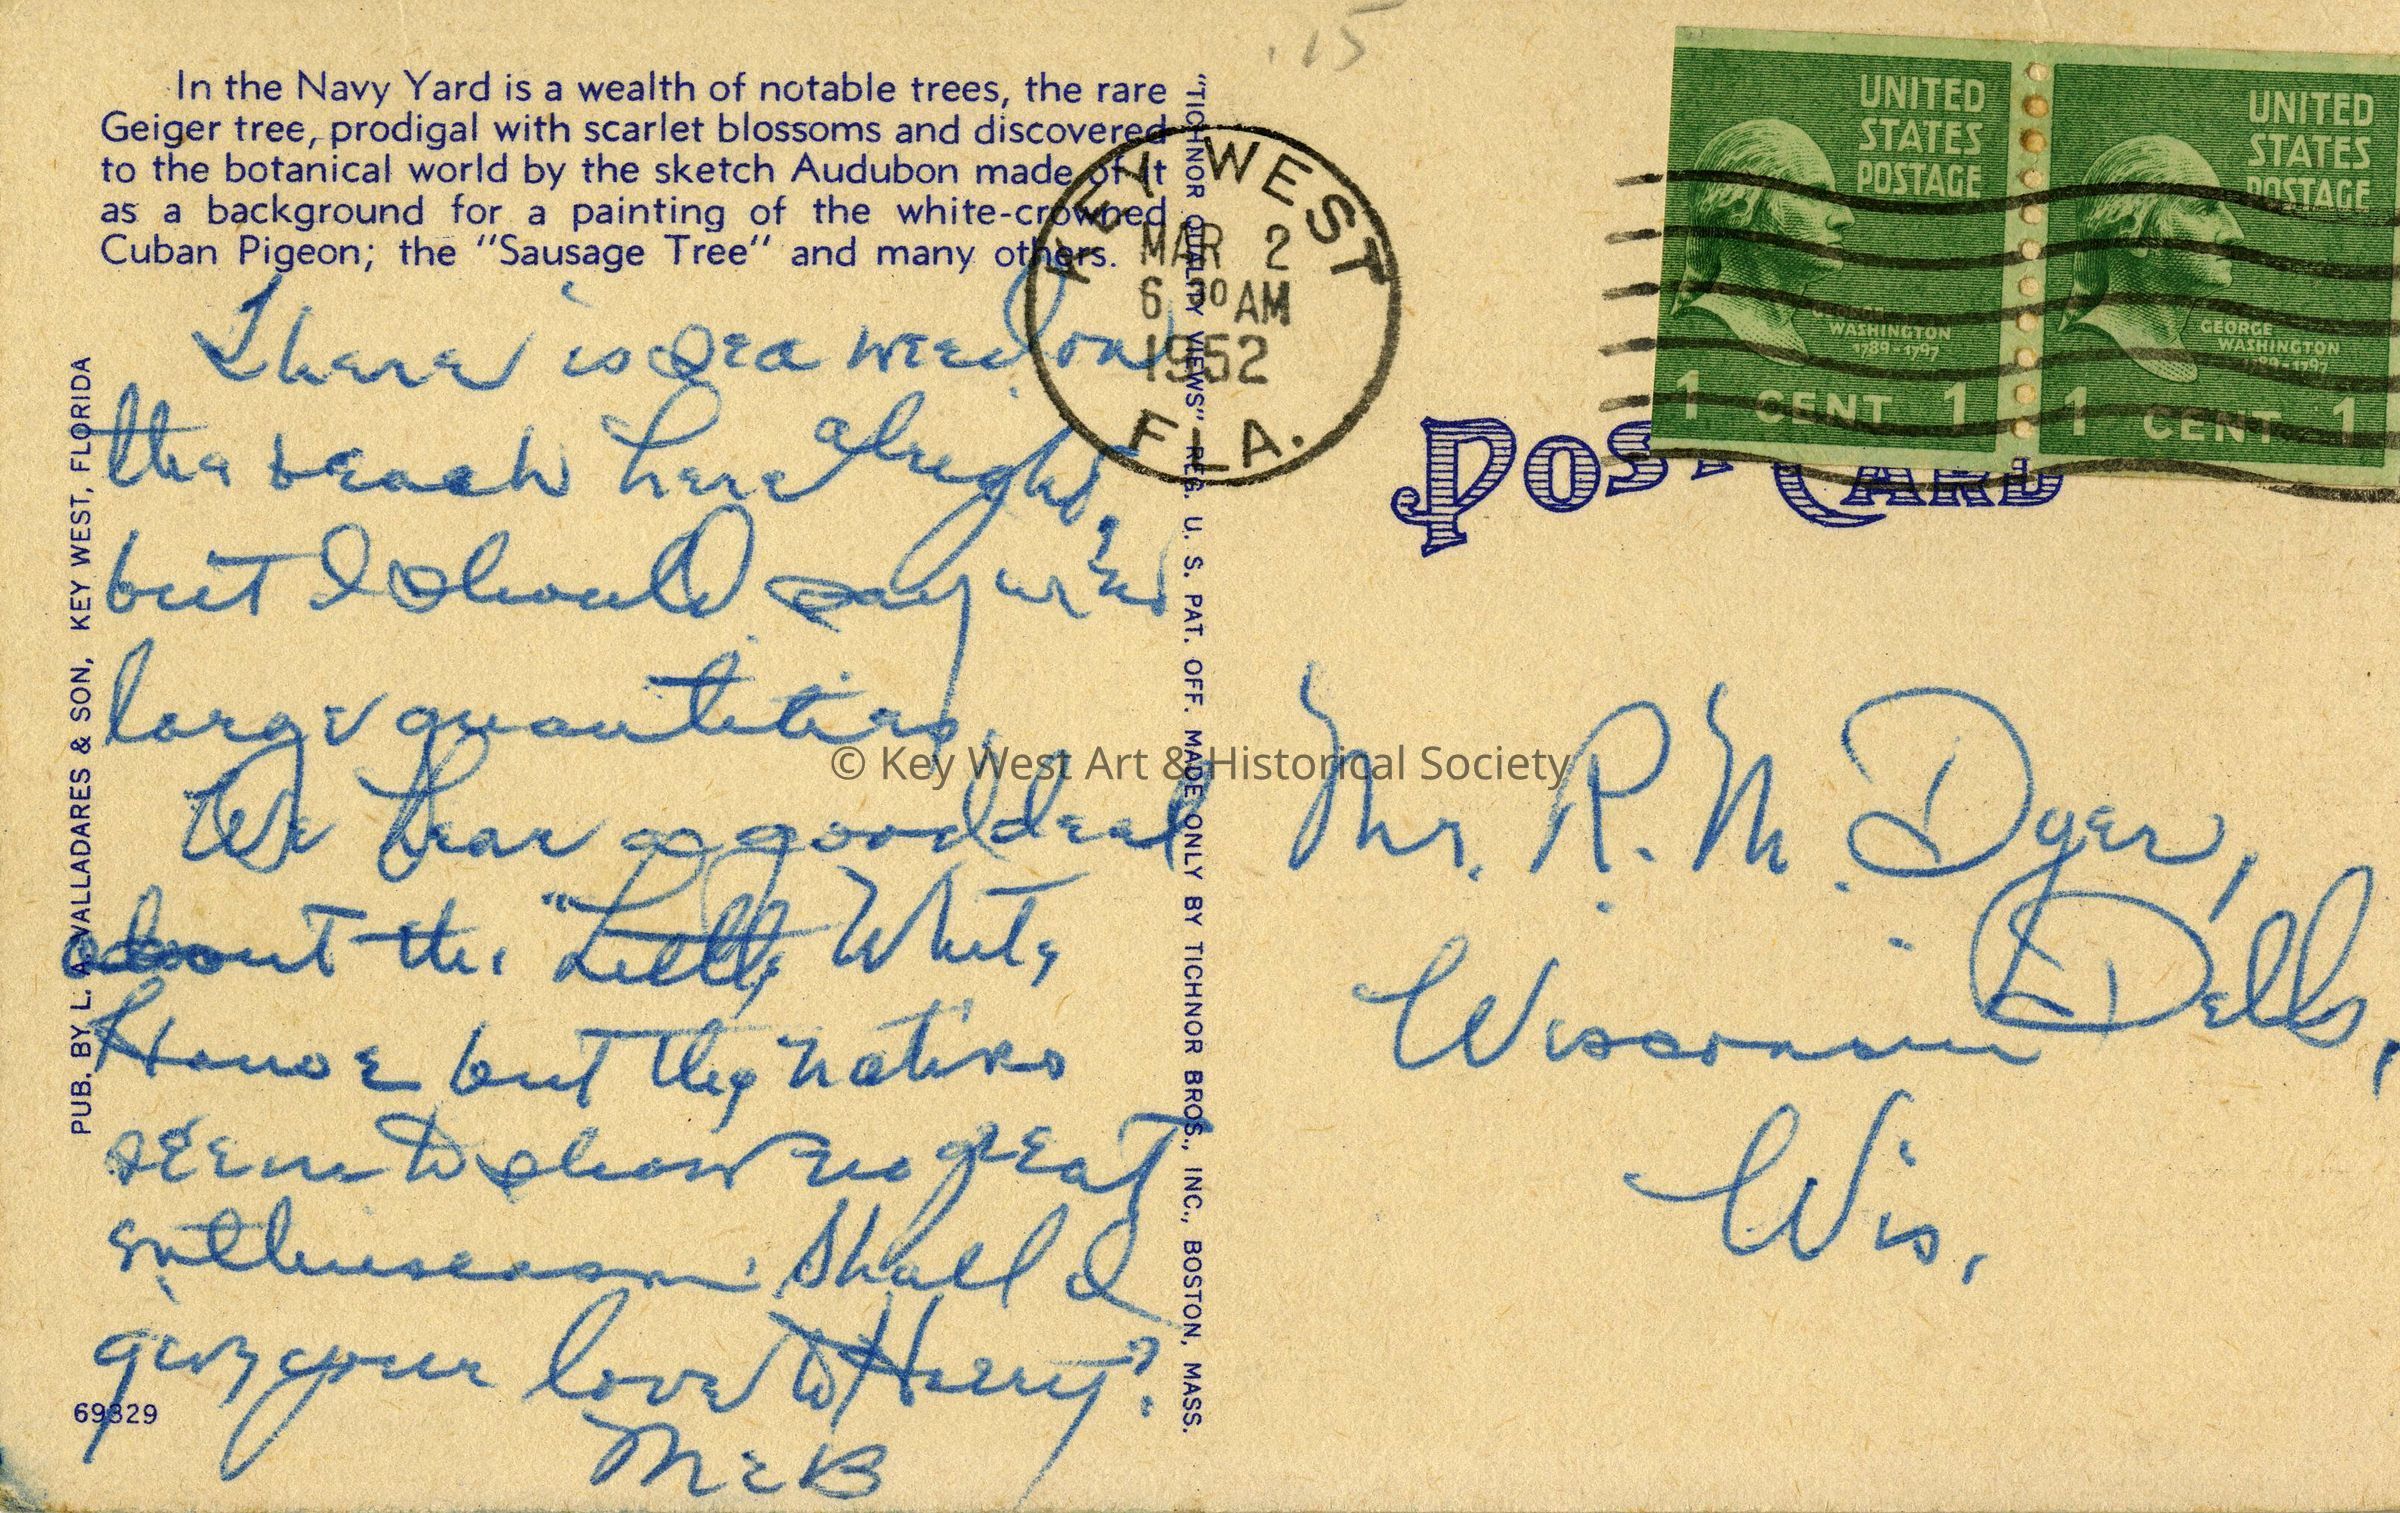 .15
In the Navy Yard is a wealth of notable trees, the rare
Geiger tree, prodigal with scarlet blossoms and discovered
to the botanical world by the sketch Audubon made of it
as a background for a painting of the white-crowned
Cuban Pigeon; the "Sausage Tree" and many others.
There is sea weed on
the beach here alright,
but I should say in
large quantities.
We hear a good deal
about the "Little White
House but the natives
seem to show no great
enthusiasm. Shall I
give your love to Harry?
McB
69829
PUB. BY L. A. VALLADARES & SON, KEY WEST, FLORIDA
"TICHNOR QUALITY VIEWS" REG. U. S. PAT. OFF. MADE ONLY BY TICHNOR BROS., INC., BOSTON, MASS.
KEY WEST
MAR 2
6 30 AM
1952
FLA.
UNITED
STATES
POSTAGE
GEORGE
WASHINGTON
1789-1797
1 CENT 1
UNITED
STATES
POSTAGE
GEORGE
WASHINGTON
1789-1797
1 CENT 1
POST CARD
Mr. R. M. Dyer,
Wisconsin Dells,
Wis.
© Key West Art & Historical Society